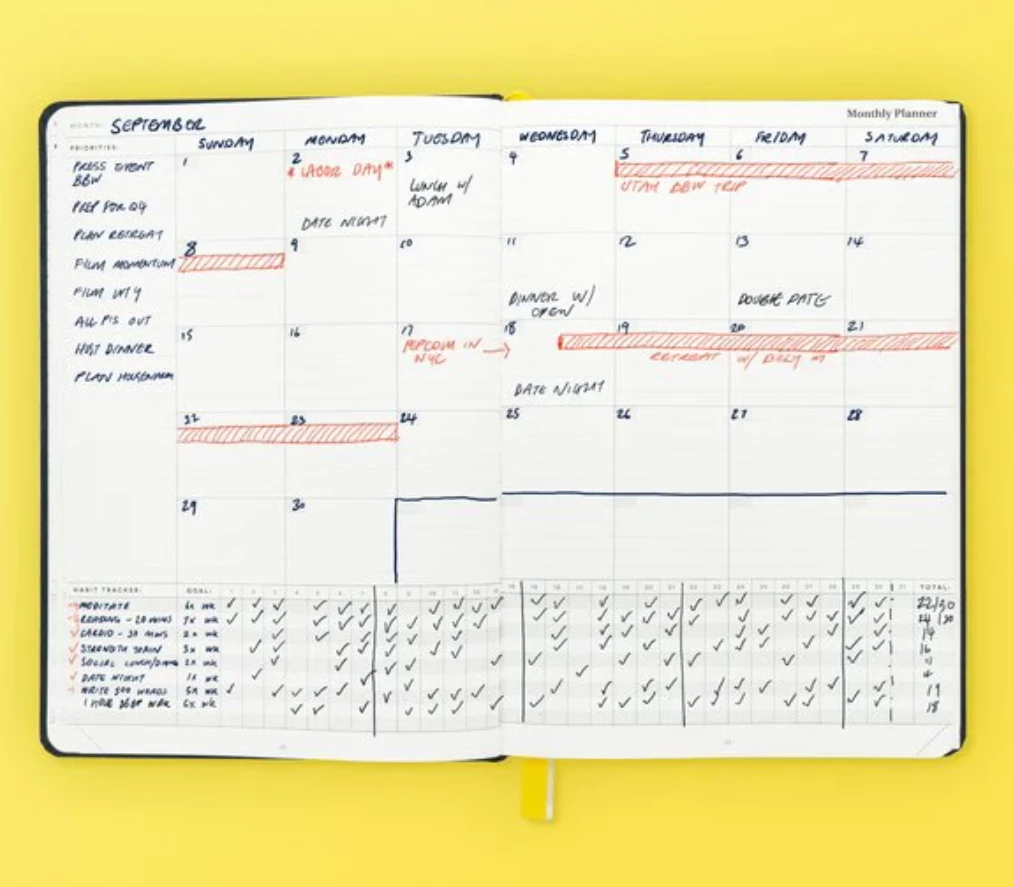 Monthly Planner
MONTH: SEPTEMBER
SUNDAY MONDAY TUESDAY WEDNESDAY THURSDAY FRIDAY SATURDAY
PRIORITIES:
PRESS EVENT
BBW
PREP FOR Q4
PLAN RETREAT
FILM MOMENTUM
FILM
ALL PIS OUT
HOST DINNER
PLAN
1 2 3 4 5 6 7
* LABOR DAY *
LUNCH W/
ADAM
UTAH BBW TRIP
DATE NIGHT
8 9 10 11 12 13 14
DINNER W/
DOUBLE DATE
15 16 17 18 19 20 21
IN
NYC
RETREAT W/
DATE NIGHT
22 23 24 25 26 27 28
29 30
HABIT TRACKER: GOAL: TOTAL:
MEDITATE 6x WK 22/30
READING - 20 MINS 7x WK
CARDIO - 30 MINS 2x WK 14
STRENGTH TRAIN 3x WK 16
SOCIAL 2x WK 11
DATE NIGHT 1x WK 4
WRITE 500 WORDS 5x WK 19
1 HOUR DEEP WRK 6x WK 18